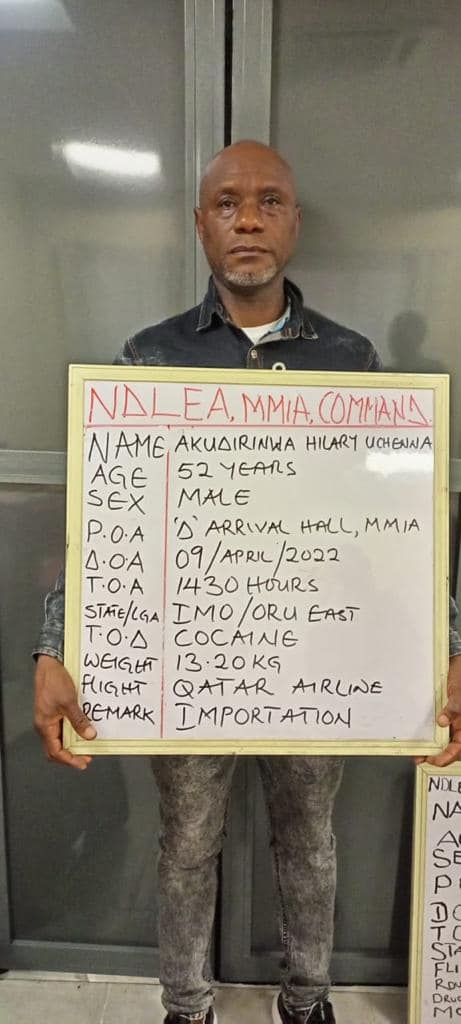 NDLEA, MMIA, COMMAND.
NAME AKUDIRINWA HILARY UCHENNA
AGE 52 YEARS
SEX MALE
P.O.A 'D' ARRIVAL HALL, MMIA
D.O.A 09/APRIL/2022
T.O.A 1430 HOURS
STATE/LGA IMO/ORU EAST
T.O.D COCAINE
WEIGHT 13.20KG
FLIGHT QATAR AIRLINE
REMARK IMPORTATION
NDLE
NA
A
SE
P
D
T
STA
FLI
ROU
DRUG